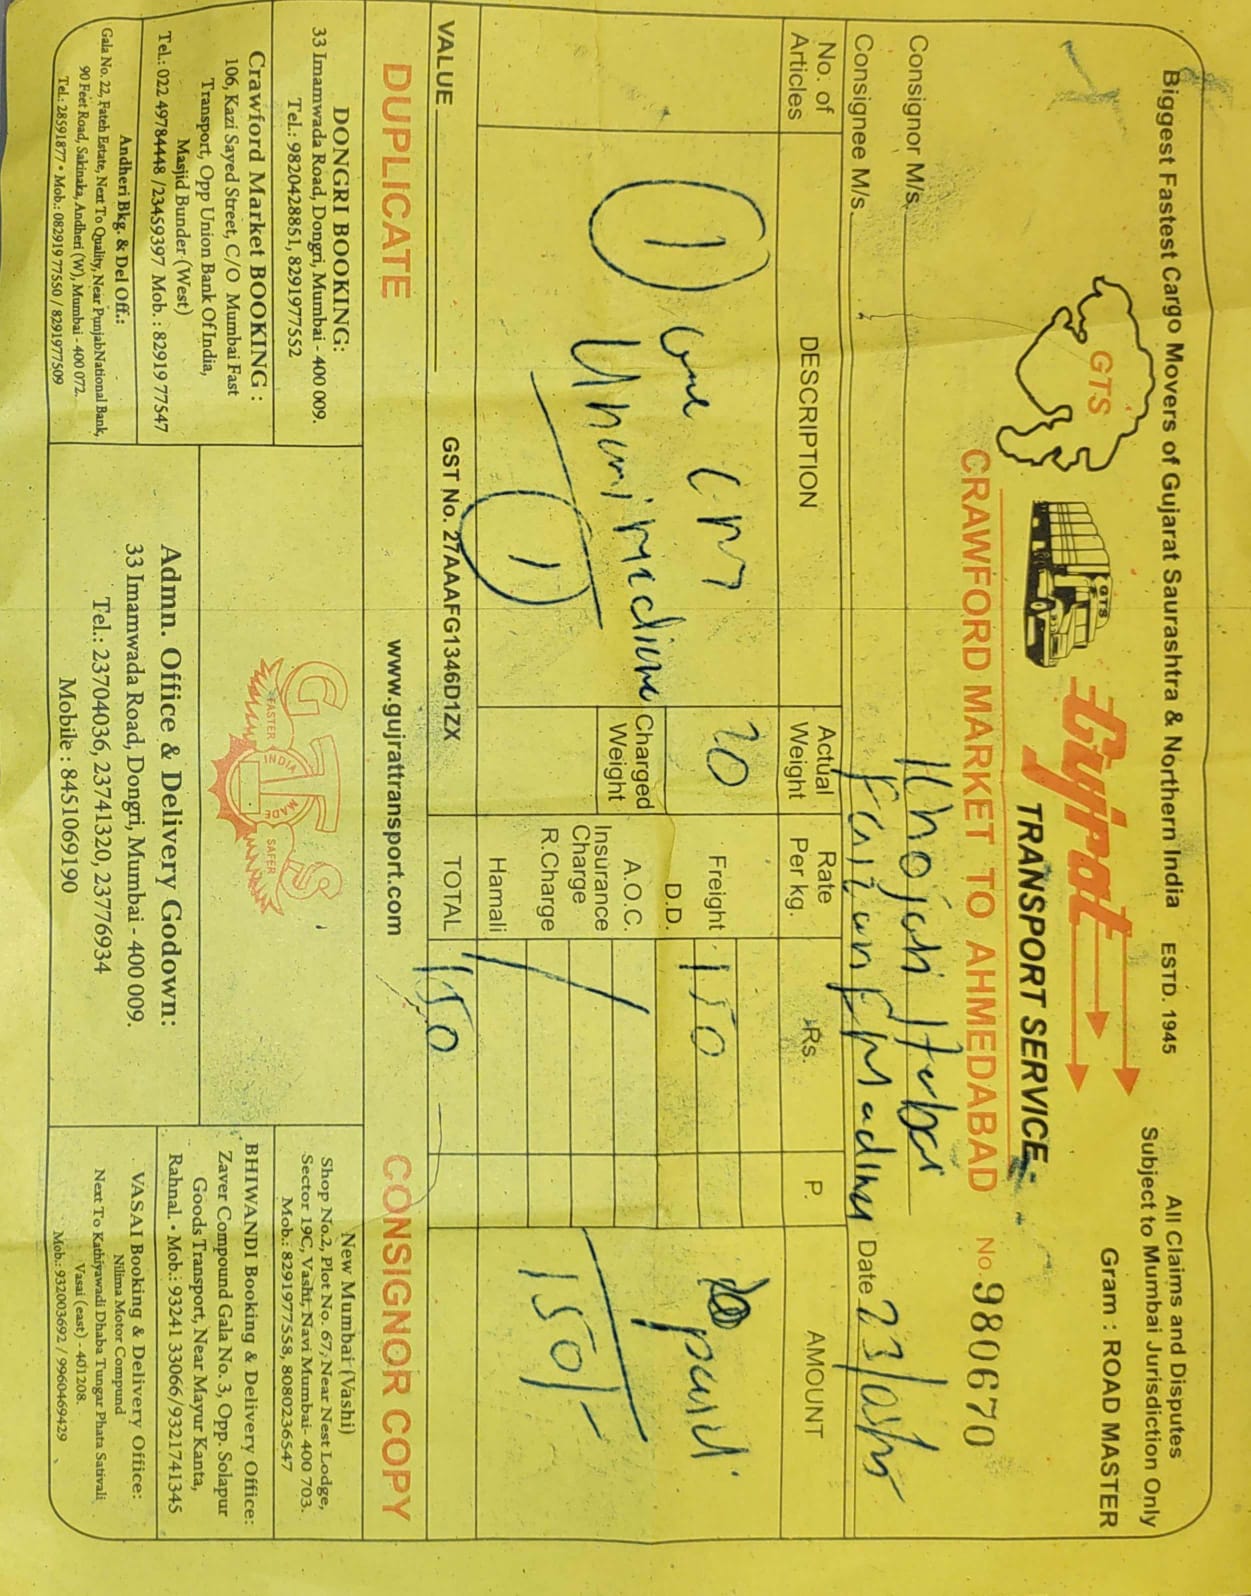 Biggest Fastest Cargo Movers of Gujarat Saurashtra & Northern India ESTD. 1945
All Claims and Disputes
Subject to Mumbai Jurisdiction Only
Gram : ROAD MASTER
GTS
GTS
Gujrat
TRANSPORT SERVICE
CRAWFORD MARKET TO AHMEDABAD
No. 980670
Consignor M/s. Khojati
Consignee M/s. Faizan E Madina Date 23/
No. of Articles DESCRIPTION Actual Weight Rate Per kg. Rs. P. AMOUNT
1 one 20 Freight 150 paid
D.D.
Charged Weight A.O.C.
Insurance Charge 150/-
R.Charge
1 Hamali
VALUE GST No. 27AAAFG1346D1ZX TOTAL 150
DUPLICATE www.gujrattransport.com CONSIGNOR COPY
DONGRI BOOKING:
33 Imamwada Road, Dongri, Mumbai - 400 009.
Tel.: 9820428851, 8291977552
Crawford Market BOOKING :
106, Kazi Sayed Street, C/O Mumbai Fast
Transport, Opp Union Bank Of India,
Masjid Bunder (West)
Tel.: 022 49784448 /23459397 Mob. : 82919 77547
Andheri Bkg. & Del Off.:
Gala No. 22, Fateh Estate, Next To Quality, Near PunjabNational Bank,
90 Feet Road, Sakinaka, Andheri (W), Mumbai - 400 072.
Tel.: 28591877 • Mob.: 082919 77550 / 8291977509
GTS
FASTER
INDIA
MADE
SAFER
Admn. Office & Delivery Godown:
33 Imamwada Road, Dongri, Mumbai - 400 009.
Tel.: 23704036, 23741320, 23776934
Mobile : 8451069190
New Mumbai (Vashi)
Shop No.2, Plot No. 67, Near Nest Lodge,
Sector 19C, Vashi, Navi Mumbai- 400 703.
Mob.: 8291977558, 8080236547
BHIWANDI Booking & Delivery Office:
Zaver Compound Gala No. 3, Opp. Solapur
Goods Transport, Near Mayur Kanta,
Rahnal. • Mob.: 93241 33066/9321741345
VASAI Booking & Delivery Office:
Nilima Motor Compund
Next To Kathiyawadi Dhaba Tungar Phata Sativali
Vasai (east) - 401208.
Mob.: 932003692 / 9960469429